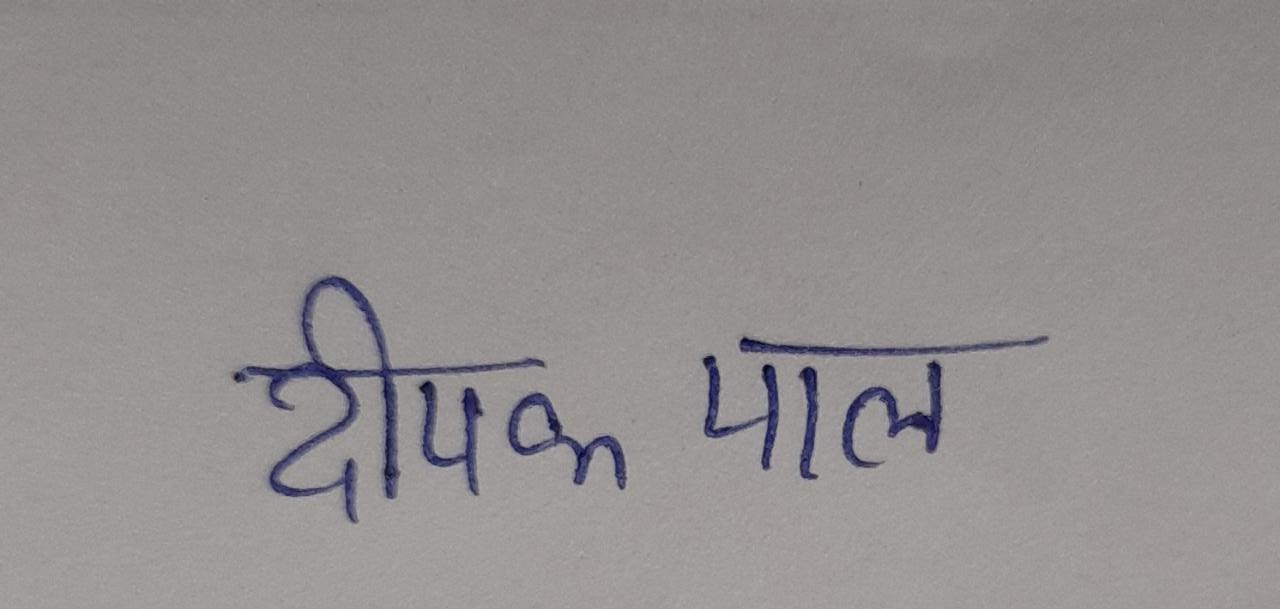 दीपक पाल